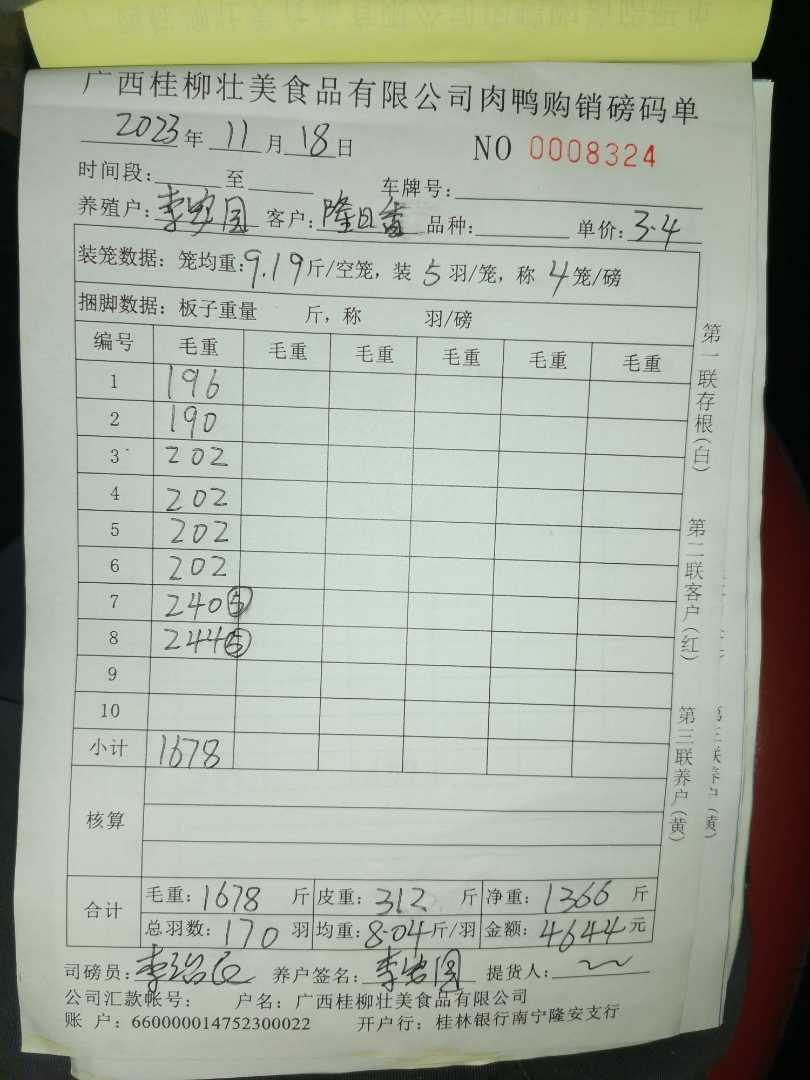 广西桂柳壮美食品有限公司肉鸭购销磅码单
2023年 11月 18日 NO 0008324
时间段: 至 车牌号:
养殖户: 李安国 客户: 隆日 品种: 单价: 3.4
装笼数据: 笼均重: 9.19斤/空笼, 装 5 羽/笼, 称 4 笼/磅
捆脚数据: 板子重量 斤, 称 羽/磅
编号 毛重 毛重 毛重 毛重 毛重 毛重
1 196
2 190
3 202
4 202
5 202
6 202
7 240 ⑤
8 244 ⑤
9
10
小计 1678
核算
合计 毛重: 1678 斤 皮重: 312 斤 净重: 1366 斤
总羽数: 170 羽 均重: 8.04斤/羽 金额: 4644元
司磅员: 李 养户签名: 李安国 提货人:
公司汇款帐号: 户名: 广西桂柳壮美食品有限公司
账 户: 660000014752300022 开户行: 桂林银行南宁隆安支行
第一联存根(白)
第二联客户(红)
第三联养户(黄)
第三联养户(黄)